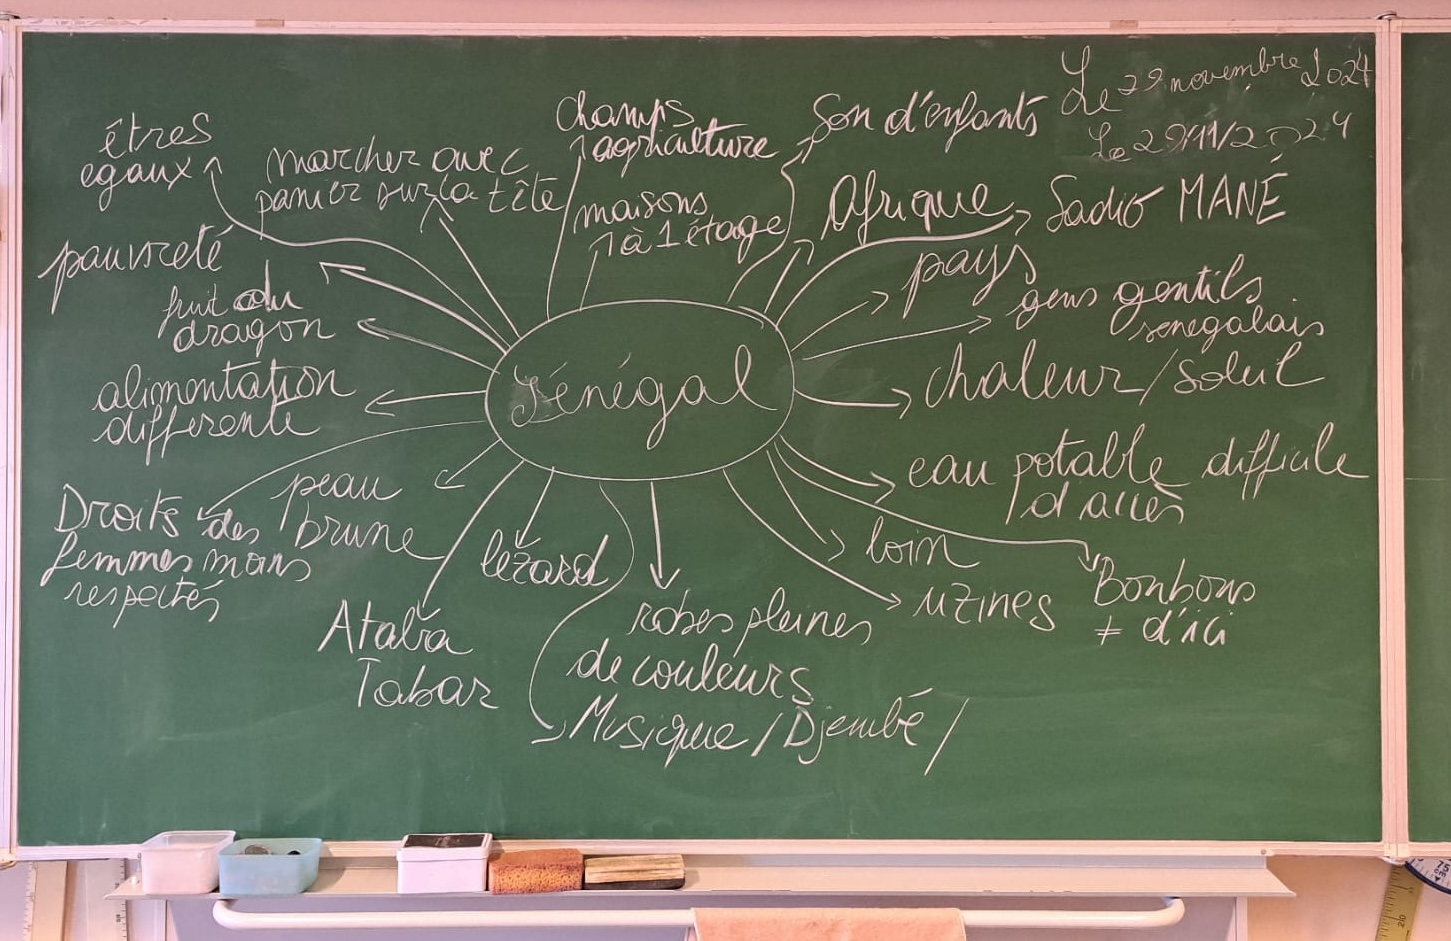 Le 29 novembre 2024
Le 29/11/2024
Sénégal
êtres
egaux
marcher avec
panier sur la tête
champs
agriculture
maisons
à 1 étage
Son d'enfants
Afrique
Sadio MANÉ
pays
gens gentils
senegalais
chaleur/soleil
eau potable difficile
d'accès
loin
Bonbons
≠ d'ici
uzines
robes pleines
de couleurs
Musique / Djembé /
lézard
Ataba
Tabar
peau
brune
Droits des
femmes moins
respectés
alimentation
differente
fruit du
dragon
pauvreté